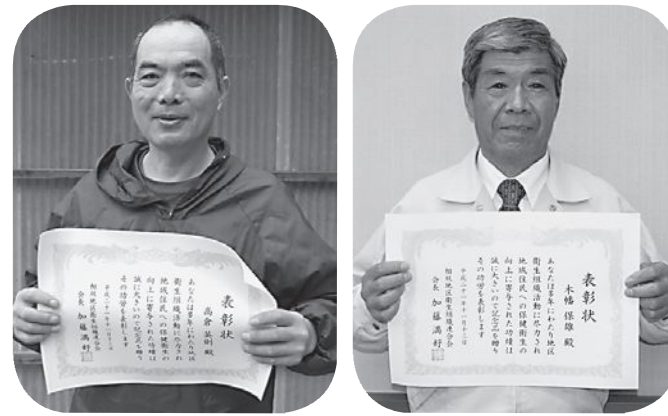 表彰状
高倉 殿
あなたは多年にわたり地区
衛生組織活動に尽力され
地域住民への保健衛生の
向上に寄与された功績は
誠に大きいので記念品を贈り
その功労を表彰します
相双地区衛生組織連合会
会長 加藤満好
表彰状
木幡 保雄 殿
あなたは多年にわたり地区
衛生組織活動に尽力され
地域住民への保健衛生の
向上に寄与された功績は
誠に大きいので記念品を贈り
その功労を表彰します
相双地区衛生組織連合会
会長 加藤満好